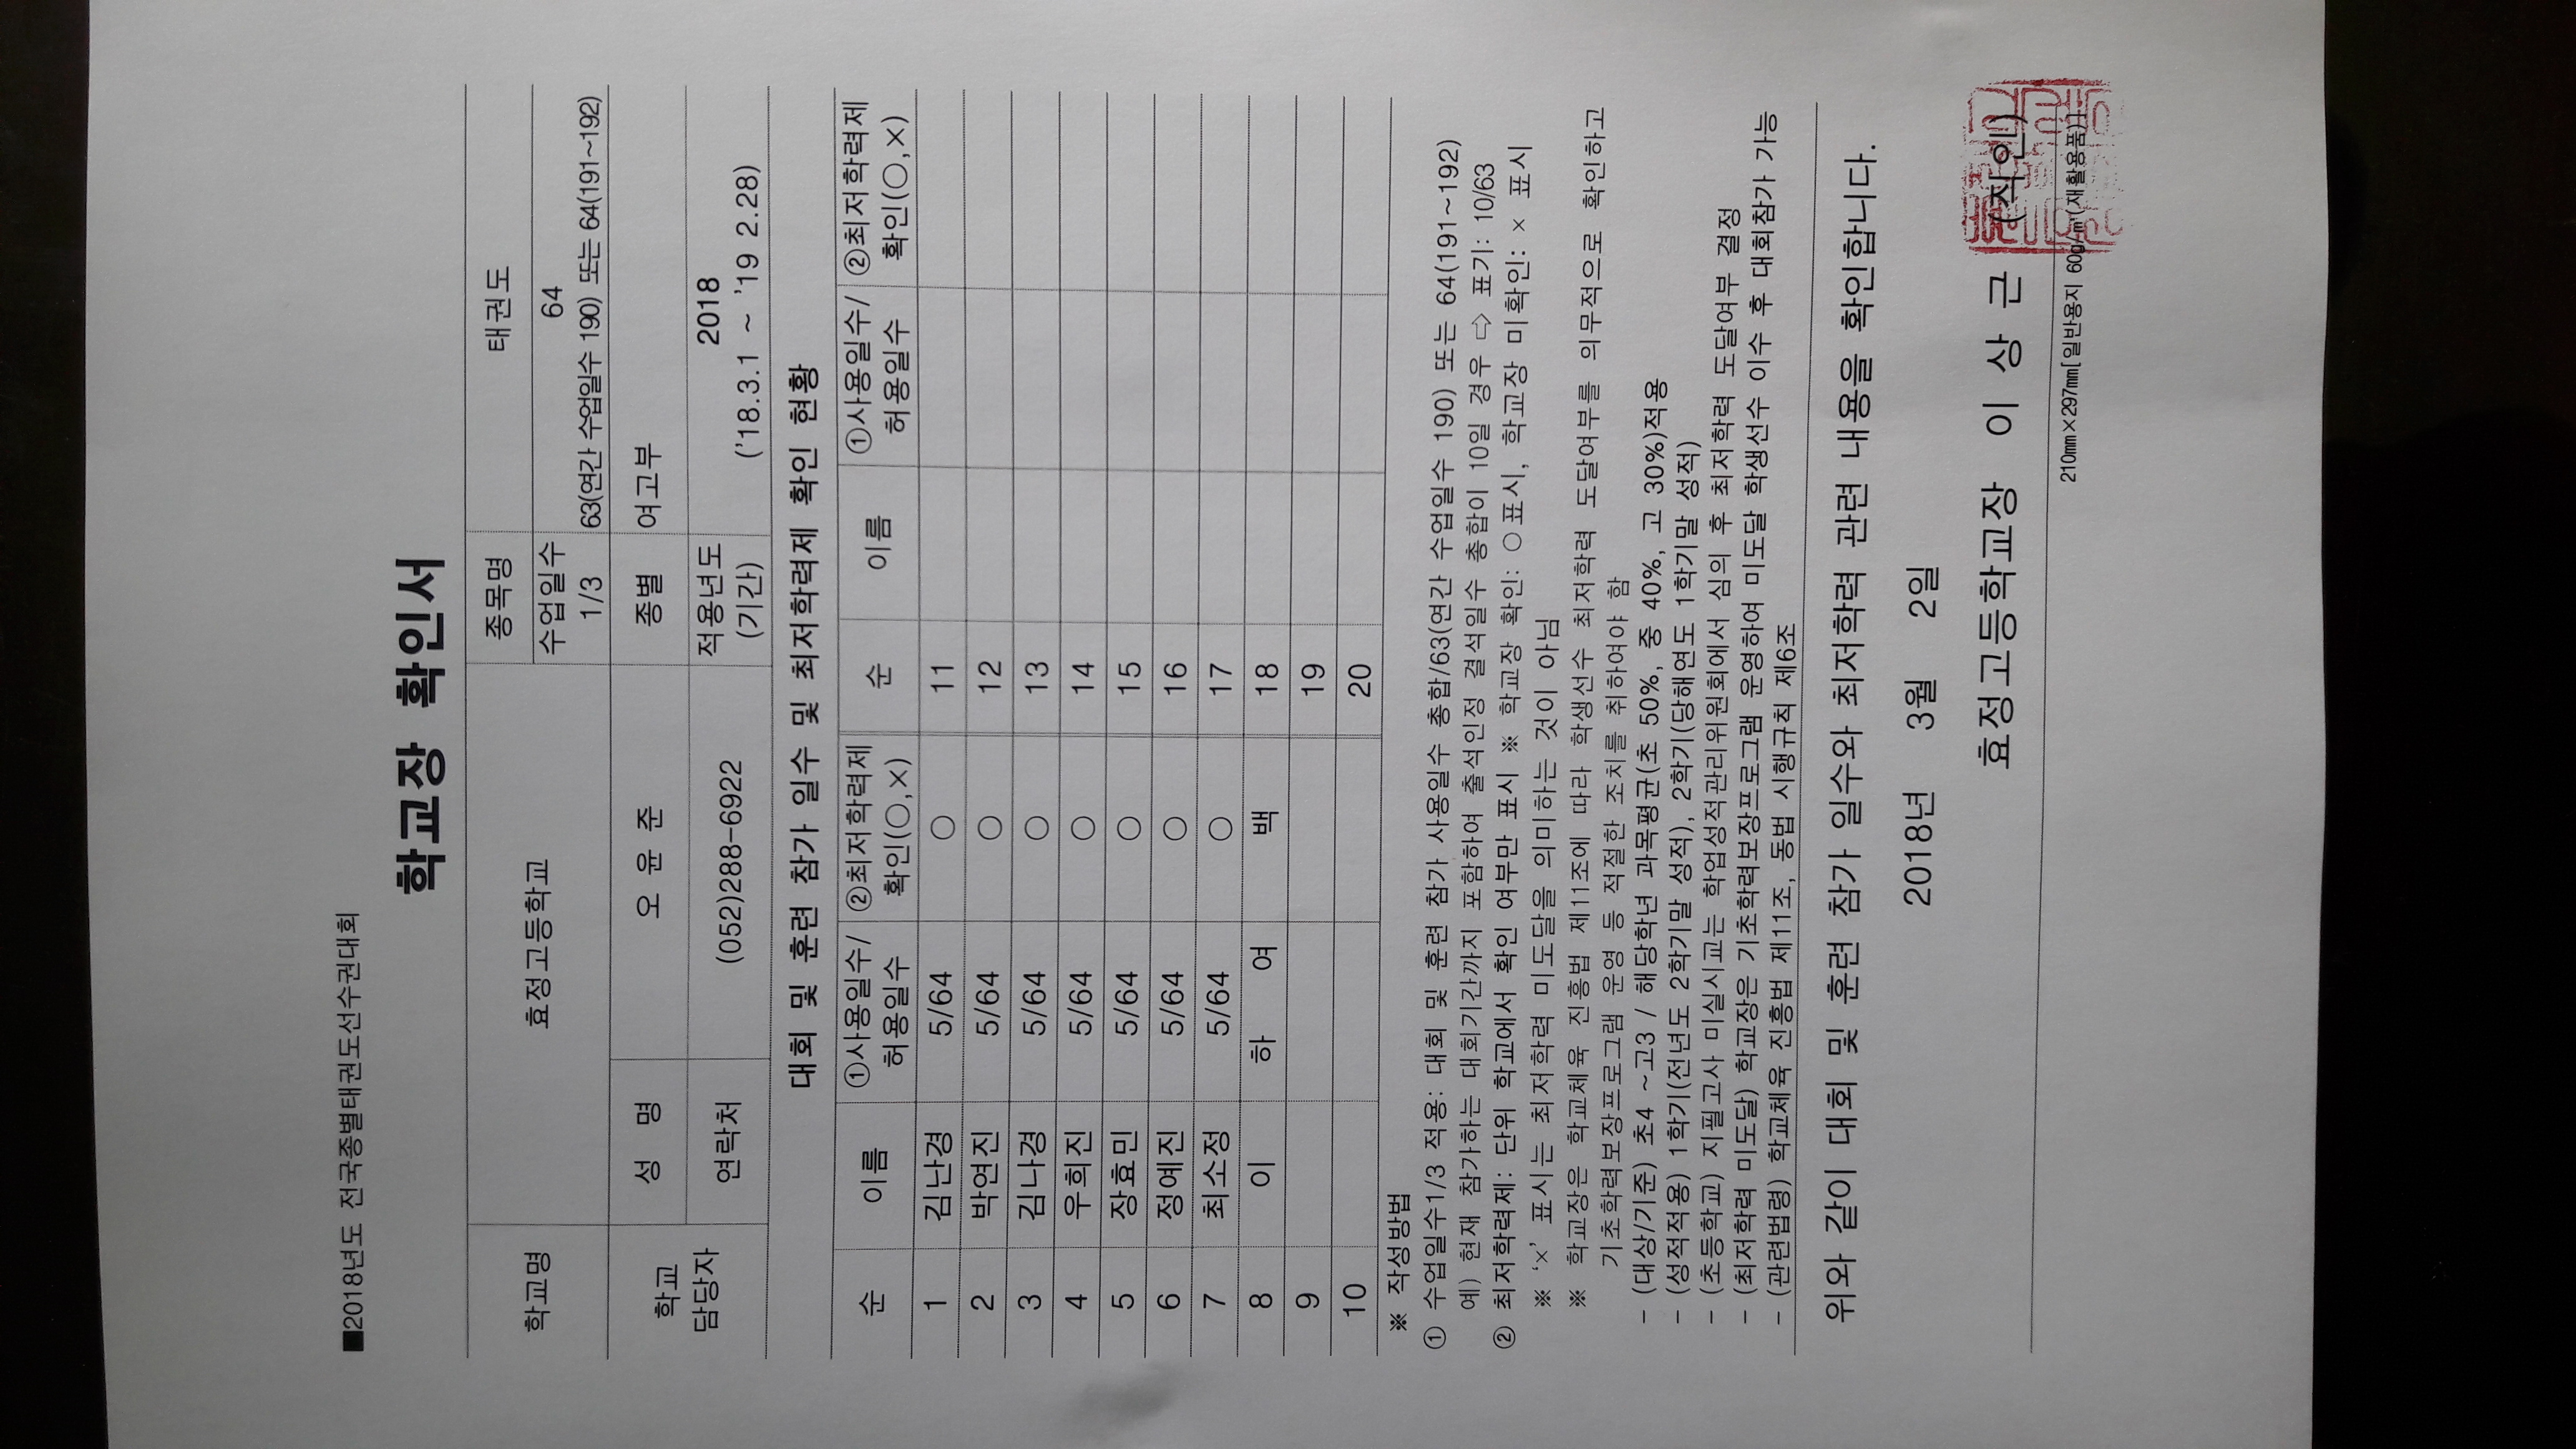 ■2018년도 전국종별태권도선수권대회
학교장 확인서
학교명 효정고등학교 종목명 태권도
수업일수 1/3 64
63(연간 수업일수 190) 또는 64(191~192)
학교 담당자 성 명 오 윤 준 종별 여고부
연락처 (052)288-6922 적용년도 (기간) 2018
('18.3.1 ~ '19 2.28)
대회 및 훈련 참가 일수 및 최저학력제 확인 현황
순 이름 ①사용일수/허용일수 ②최저학력제 확인(○,×) 순 이름 ①사용일수/허용일수 ②최저학력제 확인(○,×)
1 김난경 5/64 ○ 11
2 박연진 5/64 ○ 12
3 김나경 5/64 ○ 13
4 우희진 5/64 ○ 14
5 장효민 5/64 ○ 15
6 정예진 5/64 ○ 16
7 최소정 5/64 ○ 17
8 이 하 여 백 18
9 19
10 20
※ 작성방법
① 수업일수1/3 적용: 대회 및 훈련 참가 사용일수 총합/63(연간 수업일수 190) 또는 64(191~192)
예) 현재 참가하는 대회기간까지 포함하여 출석인정 결석일수 총합이 10일 경우 ⇨ 표기: 10/63
② 최저학력제: 단위 학교에서 확인 여부만 표시 ※ 학교장 확인: ○표시, 학교장 미확인: × 표시
※ '×' 표시는 최저학력 미도달을 의미하는 것이 아님
※ 학교장은 학교체육 진흥법 제11조에 따라 학생선수 최저학력 도달여부를 의무적으로 확인하고
기초학력보장프로그램 운영 등 적절한 조치를 취하여야 함
- (대상/기준) 초4 ~고3 / 해당학년 과목평균(초 50%, 중 40%, 고 30%)적용
- (성적적용) 1학기(전년도 2학기말 성적), 2학기(당해연도 1학기말 성적)
- (초등학교) 지필고사 미실시교는 학업성적관리위원회에서 심의 후 최저학력 도달여부 결정
- (최저학력 미도달) 학교장은 기초학력보장프로그램 운영하여 미도달 학생선수 이수 후 대회참가 가능
- (관련법령) 학교체육 진흥법 제11조, 동법 시행규칙 제6조
위와 같이 대회 및 훈련 참가 일수와 최저학력 관련 내용을 확인합니다.
2018년 3월 2일
효정고등학교장 이 상 근 (직인)
210mm×297mm[일반용지 60g/㎡(재활용품)]